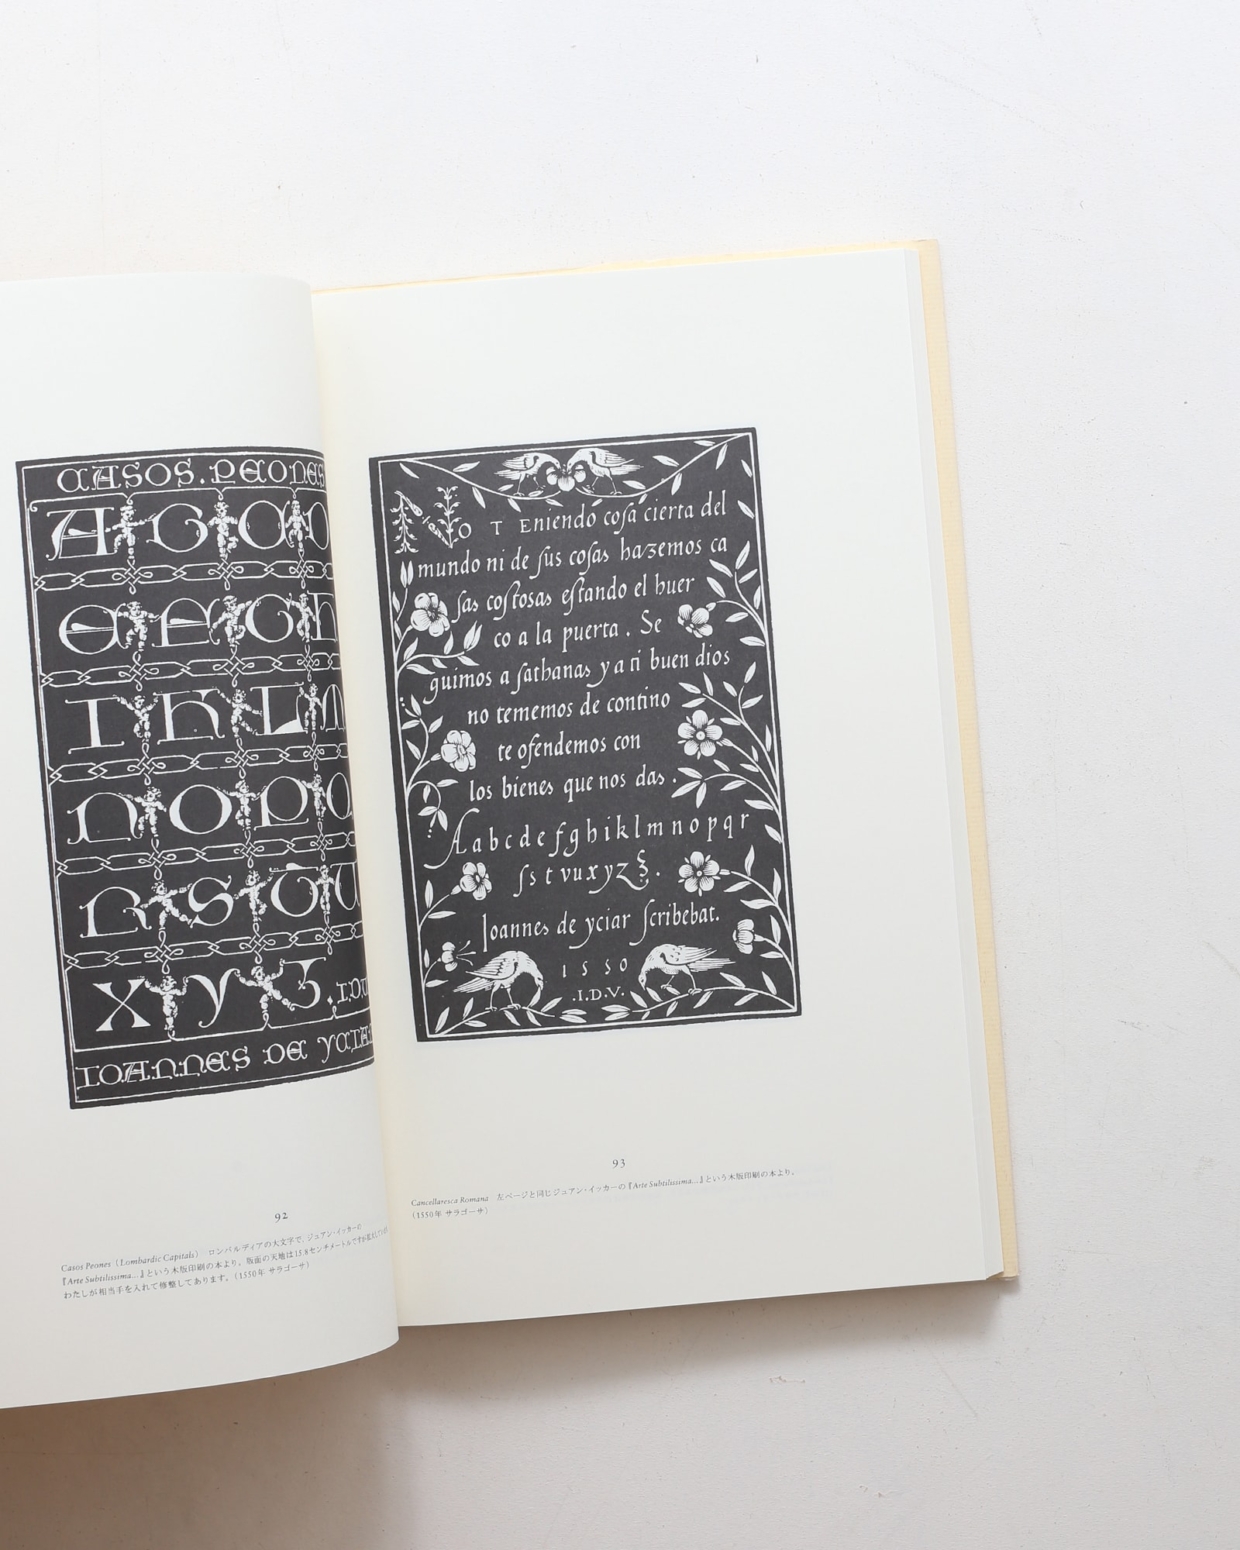 CASOS. PEONES
A B C D
E F G H
I K L M
N O P Q
R S T U
X Y Z . IDV
IOANNES DE YCIAR
92
Casos Peones (Lombardic Capitals) ロンバルディアの大文字で、ジュアン・イッカーの
『Arte Subtilissima...』という木版印刷の本より。版面の天地は15.8センチメートルですが
わたしが相当手を入れて修整してあります。(1550年 サラゴーサ)
No Teniendo coſa cierta del
mundo ni de ſus coſas hazemos ca
ſas coſtosas eſtando el huer
co a la puerta . Se
guimos a ſathanas y a ti buen dios
no tememos de contino
te ofendemos con
los bienes que nos das .
A a b c d e f g h i k l m n o p q r
ſ s t v u x y z .
Ioannes de yciar ſcribebat.
1550
.I.D.V.
93
Cancellaresca Romana 左ページと同じジュアン・イッカーの『Arte Subtilissima...』という木版印刷の本より。
(1550年 サラゴーサ)